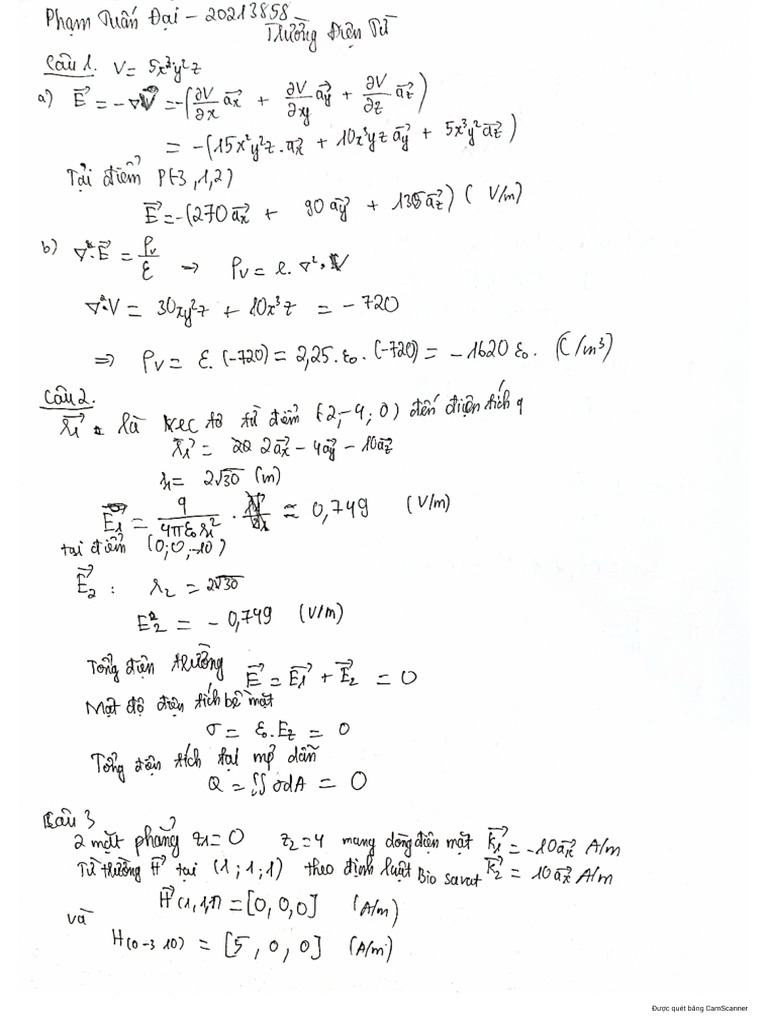 Phạm Tuấn Đại - 20213858
Trường Điện Từ
Câu 1. V = 5x³y²z
a) E⃗ = -∇V⃗ = -(∂V/∂x a⃗x + ∂V/∂xy a⃗y + ∂V/∂z a⃗z)
= -(15x²y²z.a⃗x + 10x³yz a⃗y + 5x³y² a⃗z)
Tại điểm P(-3,1,2)
E⃗ = -(270 a⃗x + 90 a⃗y + 135 a⃗z) (V/m)
b) ∇.E⃗ = ρv/ε → ρv = ε.∇².V
∇²V = 30xy²z + 10x³z = -720
⇒ ρv = ε.(-720) = 2,25.ε₀.(-720) = -1620 ε₀. (C/m³)
Câu 2.
r⃗1 là vec tơ từ điểm (-2,-4;0) đến điện tích q
r⃗1 = 2a⃗x - 4a⃗y - 10a⃗z
r = 2√30 (m)
E⃗1 = q/(4πε₀r1²) . = 0,749 (V/m)
tại điểm (0;0,-10)
E⃗2 : r2 = 2√30
E2 = -0,749 (V/m)
Tổng điện trường E⃗ = E⃗1 + E⃗2 = 0
Mật độ điện tích bề mặt
σ = ε₀.Ez = 0
Tổng điện tích tại mp dẫn
Q = ∬σdA = 0
Câu 3
2 mặt phẳng z1=0 z2=4 mang dòng điện mặt k⃗1 = -10a⃗x A/m
Từ trường H⃗ tại (1;1;1) theo định luật Bio savat k⃗2 = 10a⃗x A/m
H⃗(1,1,1) = [0,0,0] (A/m)
và
H(0 -3 10) = [5,0,0] (A/m)
Được quét bằng CamScanner